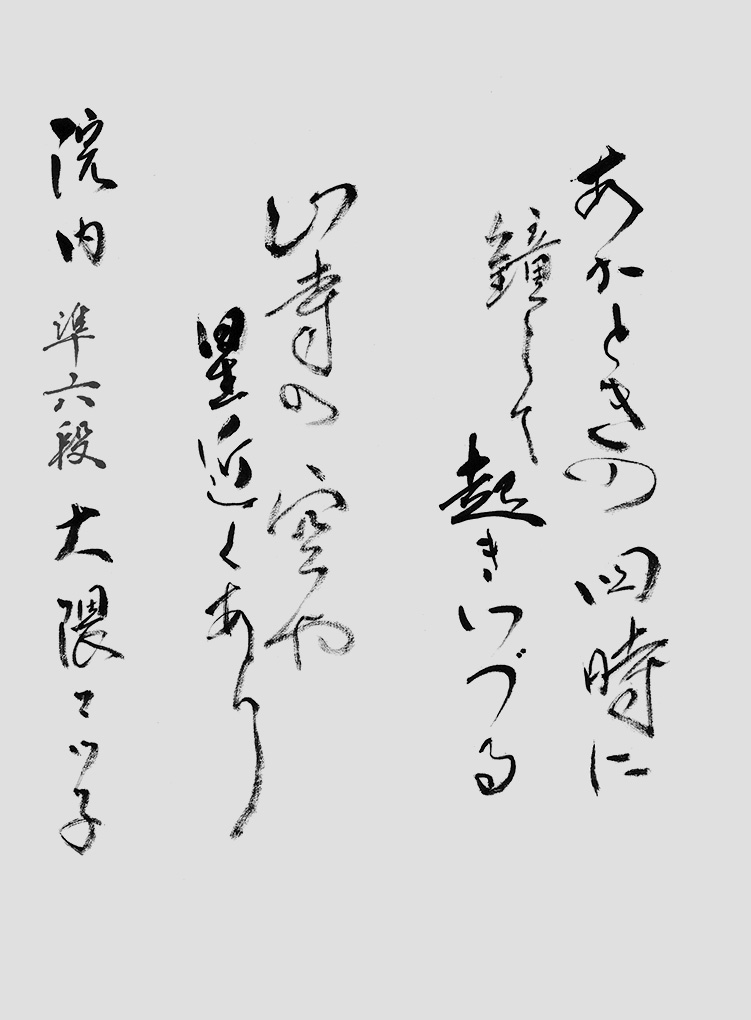 あかときの四時に
鐘して起きいづる
山寺の空や
星近くあり
院内 準六段 大隈マツ子